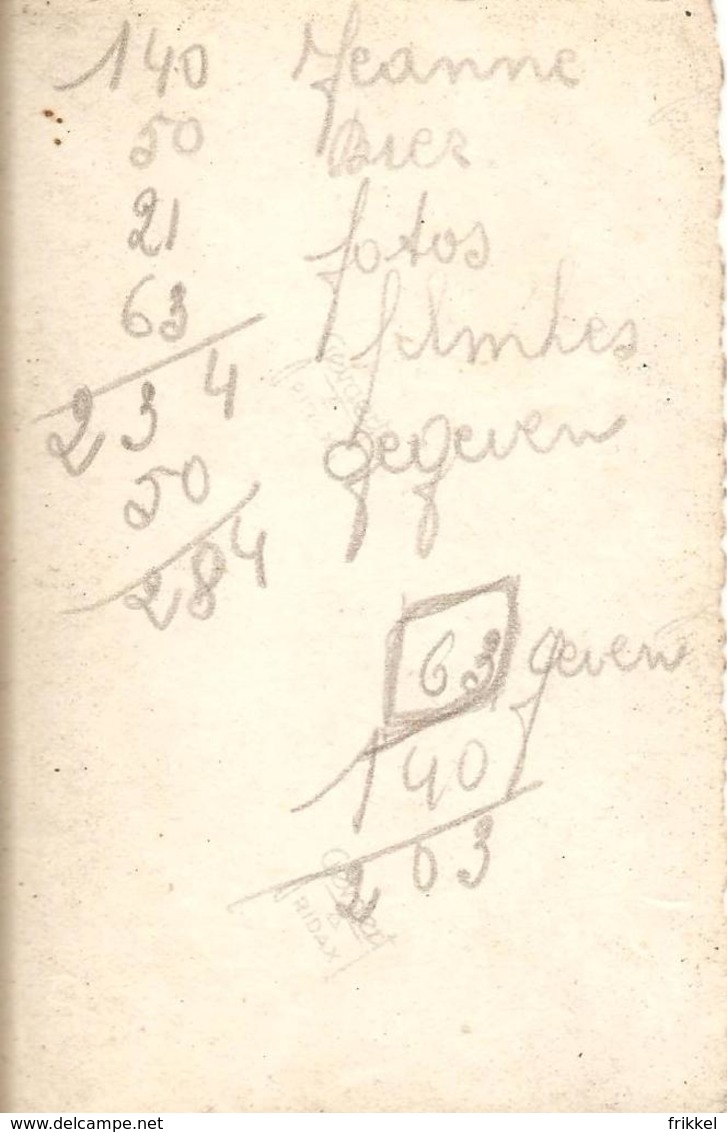 140 Jeanne
50 Bier
21 fotos
63 filmkes
234 gegeven
50
284
63 geven
140
203
Gevaert
RIDAX
delcampe.net
frikkel